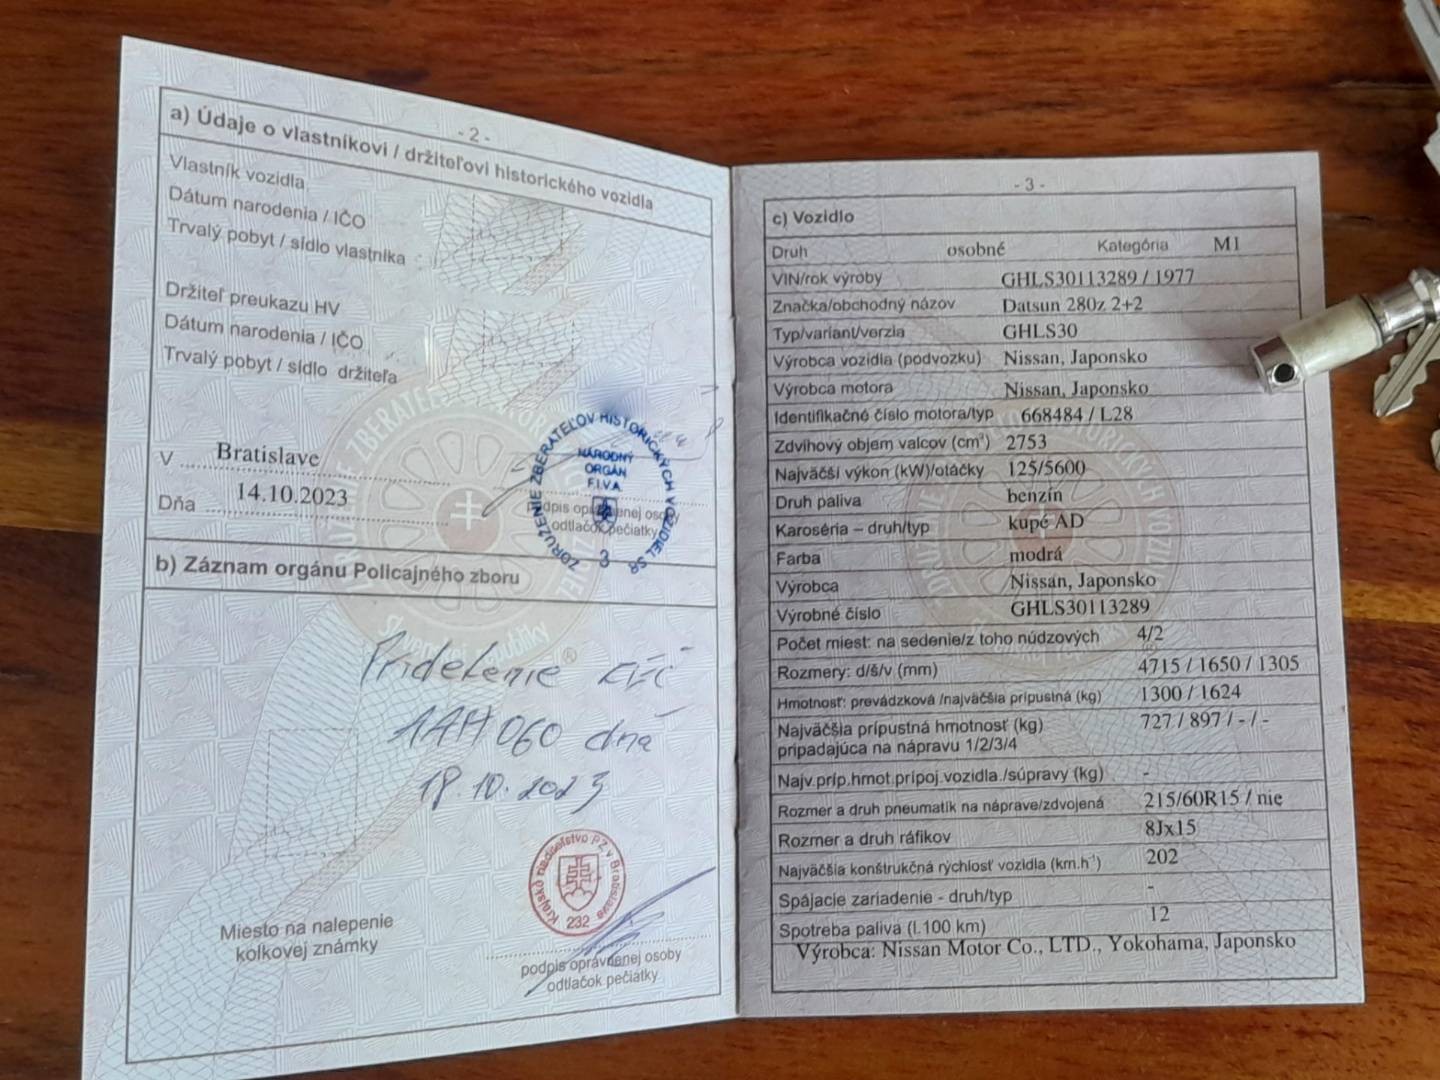 - 2 -
a) Údaje o vlastníkovi / držiteľovi historického vozidla
Vlastník vozidla
Dátum narodenia / IČO
Trvalý pobyt / sídlo vlastníka
Držiteľ preukazu HV
Dátum narodenia / IČO
Trvalý pobyt / sídlo držiteľa
V Bratislave
Dňa 14.10.2023
podpis oprávnenej osoby
odtlačok pečiatky
ZDRUŽENIE ZBERATEĽOV HISTORICKÝCH VOZIDIEL SR
NÁRODNÝ
ORGÁN
F.I.V.A.
3
b) Záznam orgánu Policajného zboru
Pridelenie EČ
1AH060 dňa
18.10.2023
Krajské riaditeľstvo PZ v Bratislave
232
Miesto na nalepenie
kolkovej známky
podpis oprávnenej osoby
odtlačok pečiatky
- 3 -
c) Vozidlo
Druh osobné Kategória M1
VIN/rok výroby GHLS30113289 / 1977
Značka/obchodný názov Datsun 280z 2+2
Typ/variant/verzia GHLS30
Výrobca vozidla (podvozku) Nissan, Japonsko
Výrobca motora Nissan, Japonsko
Identifikačné číslo motora/typ 668484 / L28
Zdvihový objem valcov (cm³) 2753
Najväčší výkon (kW)/otáčky 125/5600
Druh paliva benzín
Karoséria – druh/typ kupé AD
Farba modrá
Výrobca Nissan, Japonsko
Výrobné číslo GHLS30113289
Počet miest: na sedenie/z toho núdzových 4/2
Rozmery: d/š/v (mm) 4715 / 1650 / 1305
Hmotnosť: prevádzková /najväčšia prípustná (kg) 1300 / 1624
Najväčšia prípustná hmotnosť (kg) 727 / 897 / - / -
pripadajúca na nápravu 1/2/3/4
Najv.príp.hmot.prípoj.vozidla./súpravy (kg) -
Rozmer a druh pneumatík na náprave/zdvojená 215/60R15 / nie
Rozmer a druh ráfikov 8Jx15
Najväčšia konštrukčná rýchlosť vozidla (km.h⁻¹) 202
Spájacie zariadenie - druh/typ -
Spotreba paliva (l.100 km) 12
Výrobca: Nissan Motor Co., LTD., Yokohama, Japonsko